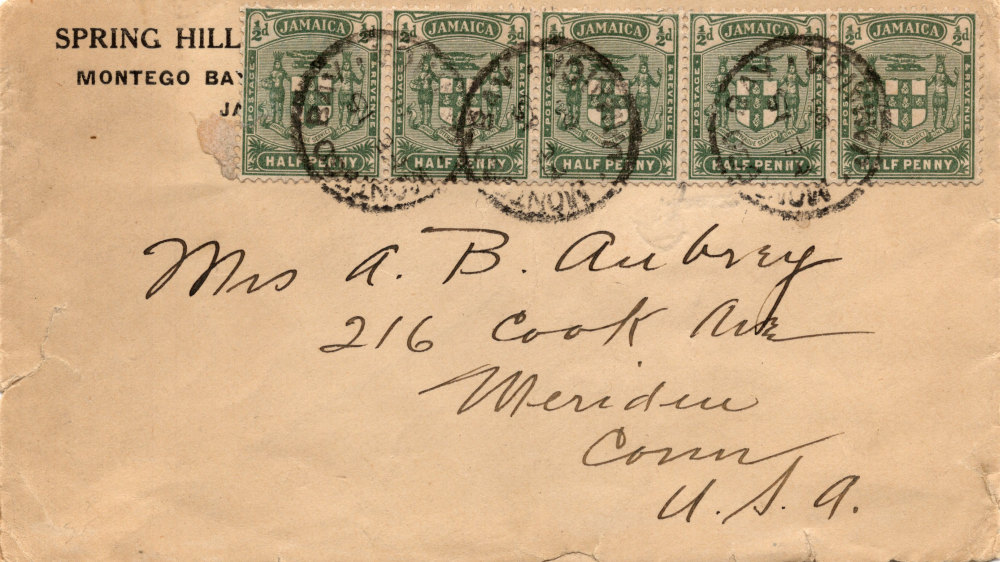 SPRING HILL
MONTEGO BAY
JA
½d JAMAICA ½d
POSTAGE REVENUE
HALF PENNY
½d JAMAICA ½d
POSTAGE REVENUE
HALF PENNY
½d JAMAICA ½d
POSTAGE REVENUE
HALF PENNY
½d JAMAICA ½d
POSTAGE REVENUE
HALF PENNY
½d JAMAICA ½d
POSTAGE REVENUE
HALF PENNY
Mrs A. B. Aubrey
216 Cook Ave
Meriden
Conn
U. S. A.